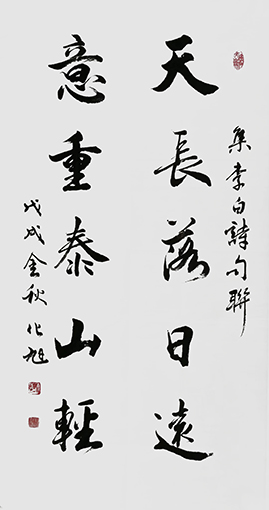 集李白詩句聯
天長落日遠
意重泰山輕
戊戌金秋化旭